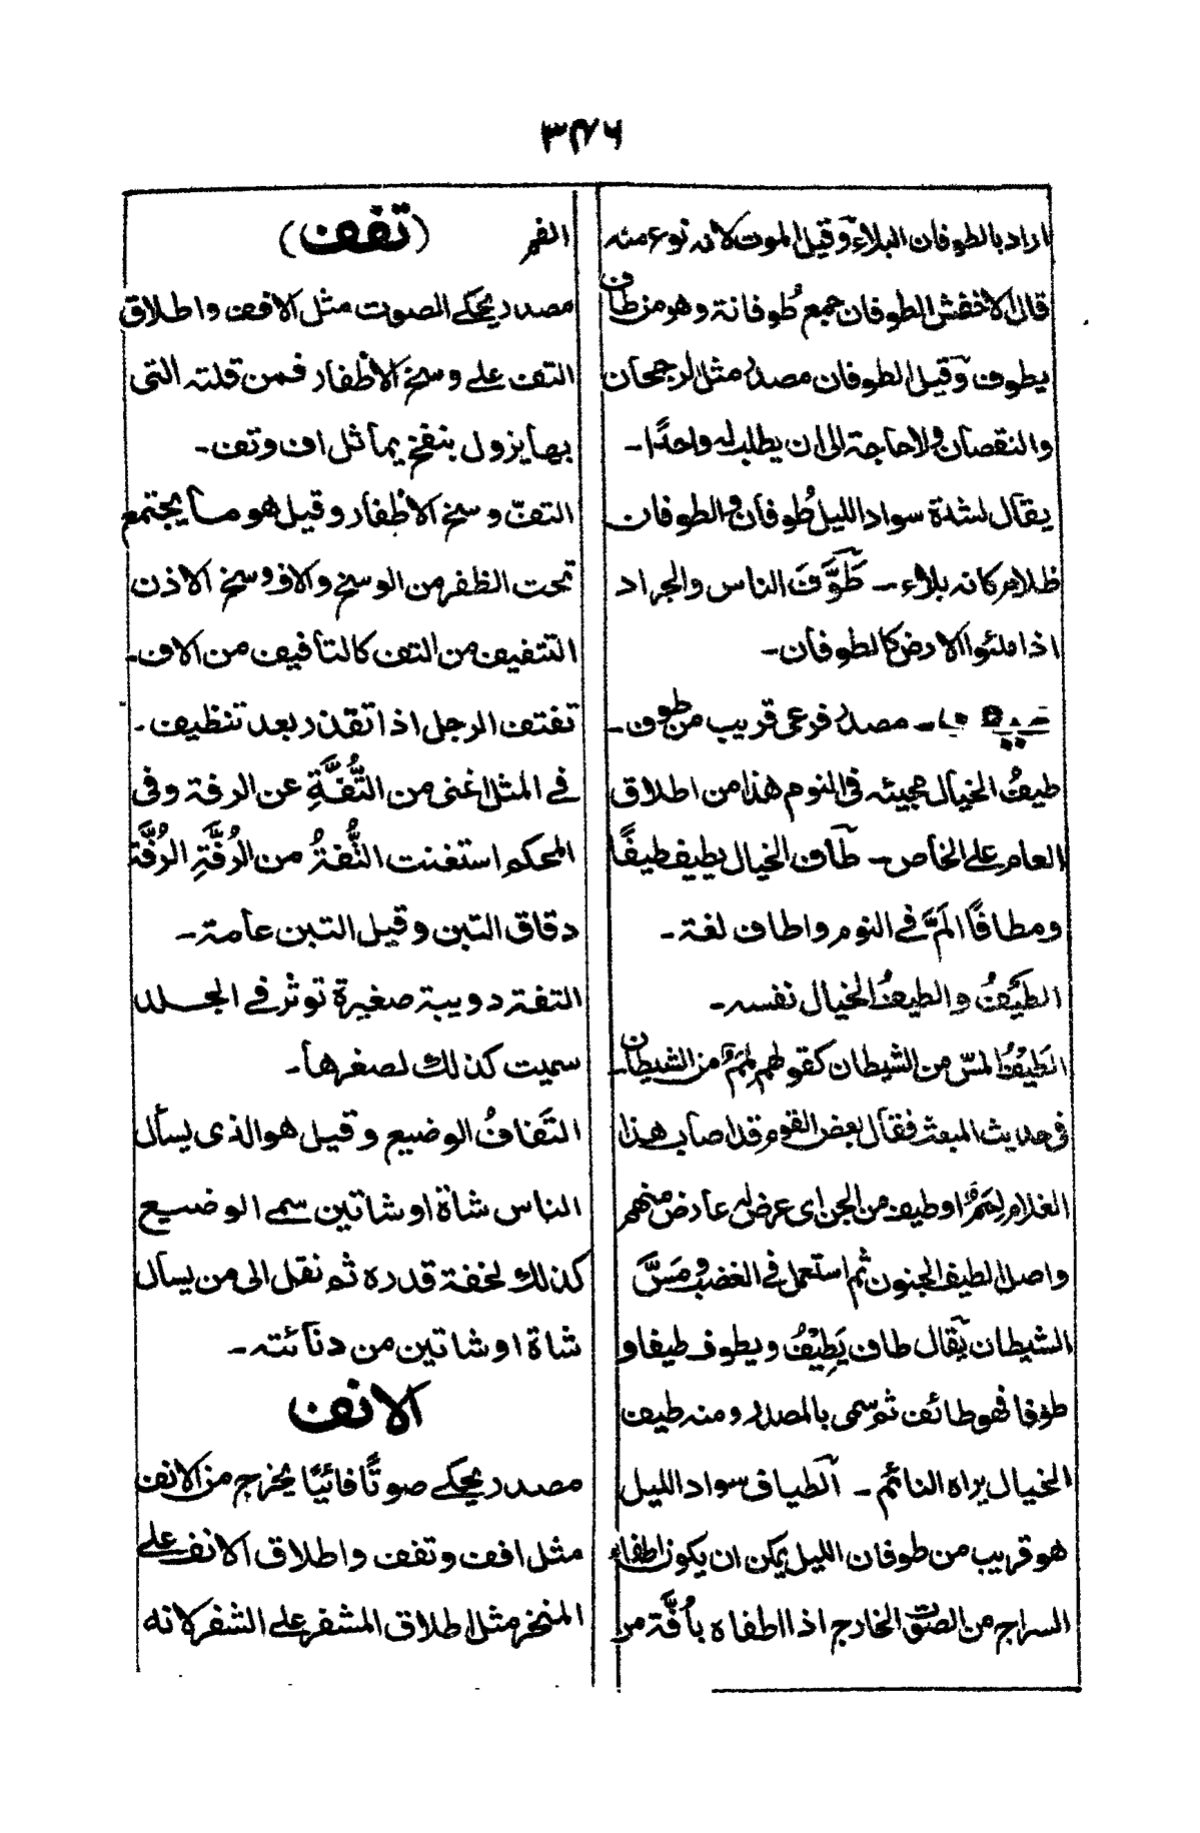 ۳۴۶
اراد بالطوفان البلاء وقيل الموت لانه نوع منه
قال الاخفش الطوفان جمع طُوفانة وهو من طاف
يطوف وقيل الطوفان مصدر مثل الرجحان
والنقصان ولا حاجة الى ان يطلب له واحدًا۔
يقال لشدة سواد الليل طُوفان والطوفان
ظلام كانه بلاء۔ طَوَّفَ الناس والجراد
اذا ملئوا الارض كالطوفان۔
مصدر فرعى قريب من طوف۔
طيفُ الخيال مجيئه فى النوم هذا من اطلاق
العام على الخاص۔ طاف الخيال يطيف طيفًا
ومطافًا المَّ فى النوم واطاف لغة۔
الطَيفُ والطيفُ الخيال نفسه۔
الطَيْفُ المسّ من الشيطان كقولهم لمَمٌ من الشيطان۔
فى حديث المبعث فقال بعض القوم قد اصاب هذا
الغلام لمَمٌ او طيف من الجن اى عرض له عارض منهم
واصل الطيف الجنون ثم استعمل فى الغضب ومَسَّ
الشيطان يقال طاف يَطِيْفُ ويطوف طيفا و
طوفا فهو طائف ثم سمى بالمصدر ومنه طيف
الخيال يراه النائم۔ الطياف سواد الليل
هو قريب من طوفان الليل يمكن ان يكون اطفاء
السراج من الصوت الخارج اذا اطفاه بأُفَّة من
الفم (تفف)
مصدر يحكى الصوت مثل الافف واطلاق
التف على وسخ الأظفار فمن قلته التى
بها يزول بنفخ يماثل اف وتف۔
التفّ وسخ الاظفار وقيل هو ما يجتمع
تحت الظفر من الوسخ والاف وسخ الاذن
التتفيف من التف كالتأفيف من الاف۔
تفتف الرجل اذا تقذر بعد تنظيف۔
فى المثل اغنى من التُّفَّةِ عن الرفة وفى
المحكم استغنت التُّفةُ من الرُفَّةِ الرُفَّة
دقاق التبن وقيل التبن عامة۔
التفة دويبة صغيرة توثر فى الجلد
سميت كذلك لصغرها۔
التَفافُ الوضيع وقيل هو الذى يسأل
الناس شاة او شاتين سمى الوضيع
كذلك لخفة قدره ثم نقل الى من يسأل
شاة او شاتين من دنائته۔
الانف
مصدر يحكى صوتًا فائيًا يخرج من الانف
مثل افف وتفف واطلاق الانف على
المنخر مثل اطلاق المشفر على الشفر لانه